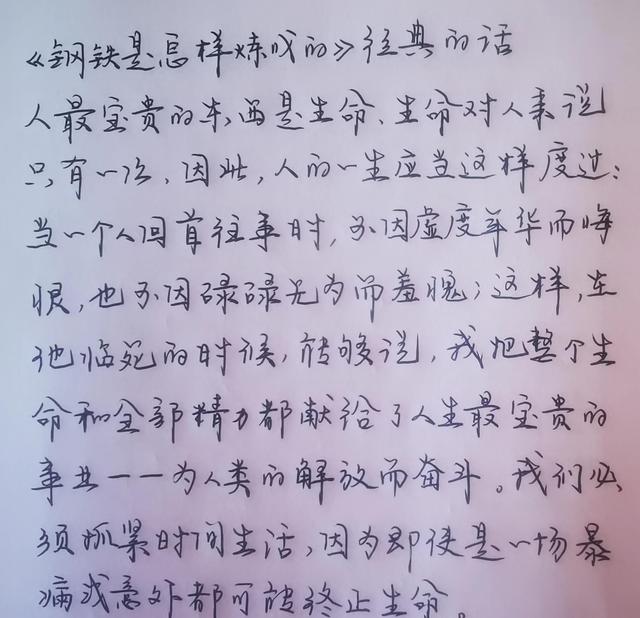 《钢铁是怎样炼成的》经典的话
人最宝贵的东西是生命、生命对人来说
只有一次，因此，人的一生应当这样度过：
当一个人回首往事时，不因虚度年华而悔
恨，也不因碌碌无为而羞愧；这样，在
他临死的时候，能够说，我把整个生
命和全部精力都献给了人生最宝贵的
事业——为人类的解放而奋斗。我们必
须抓紧时间生活，因为即使是一场暴
病或意外都可能终止生命。